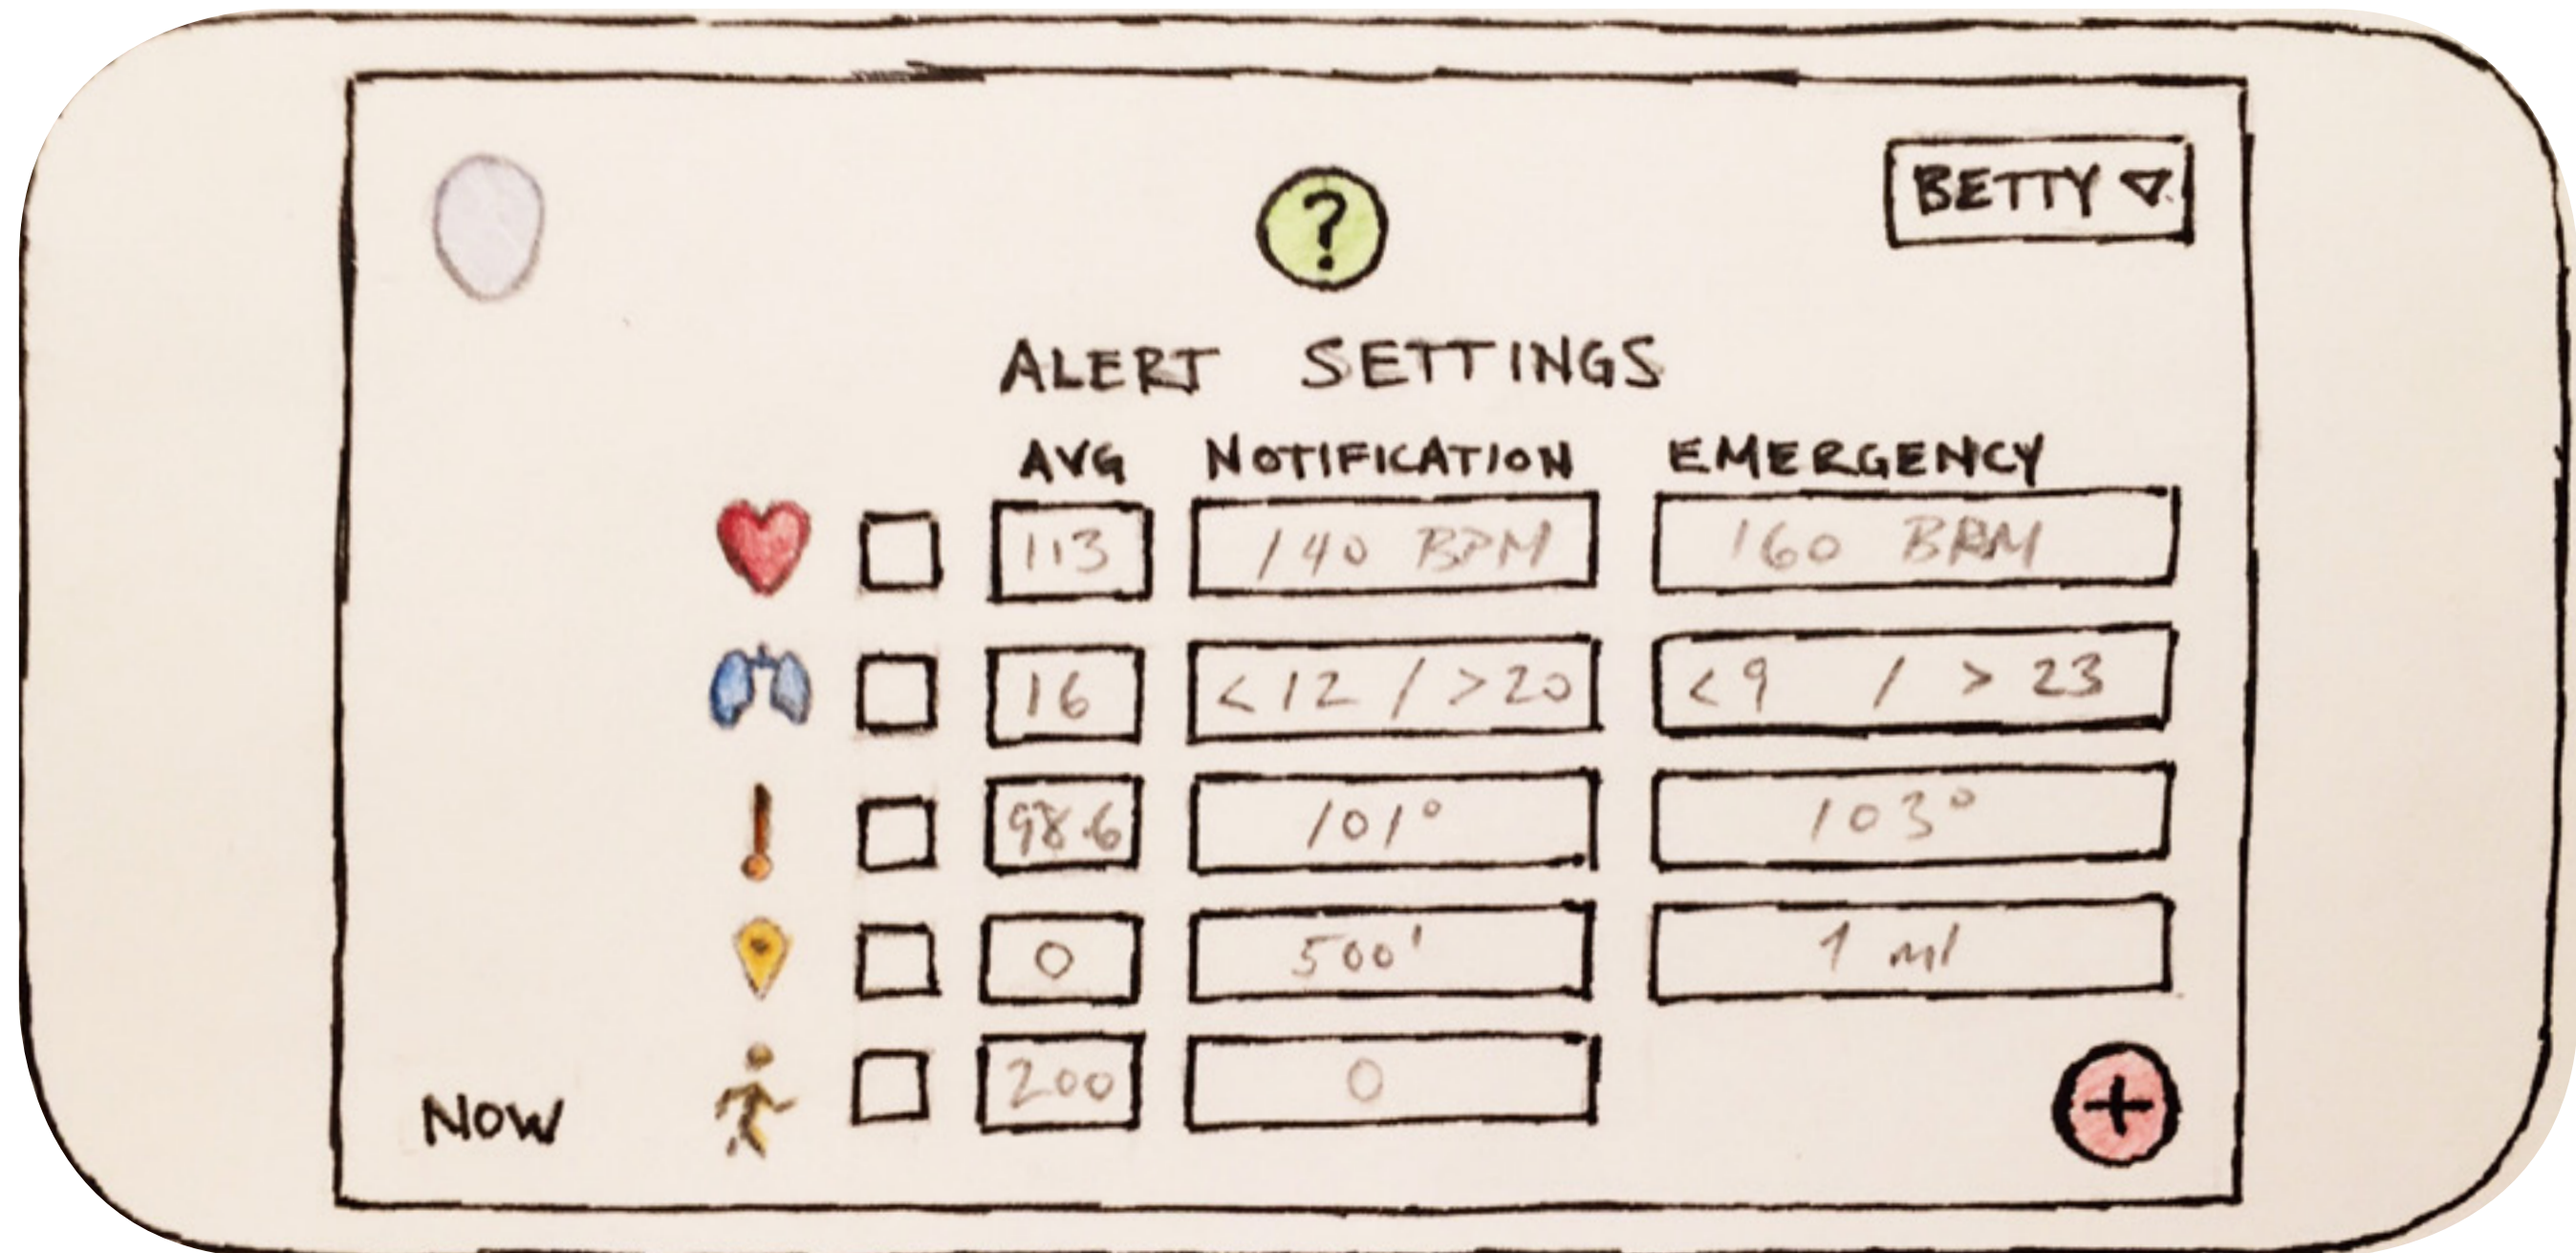 BETTY
?
ALERT SETTINGS
AVG NOTIFICATION EMERGENCY
113 140 BPM 160 BPM
16 <12 / >20 <9 / > 23
98.6 101° 103°
0 500' 1 mi
200 0
NOW
+